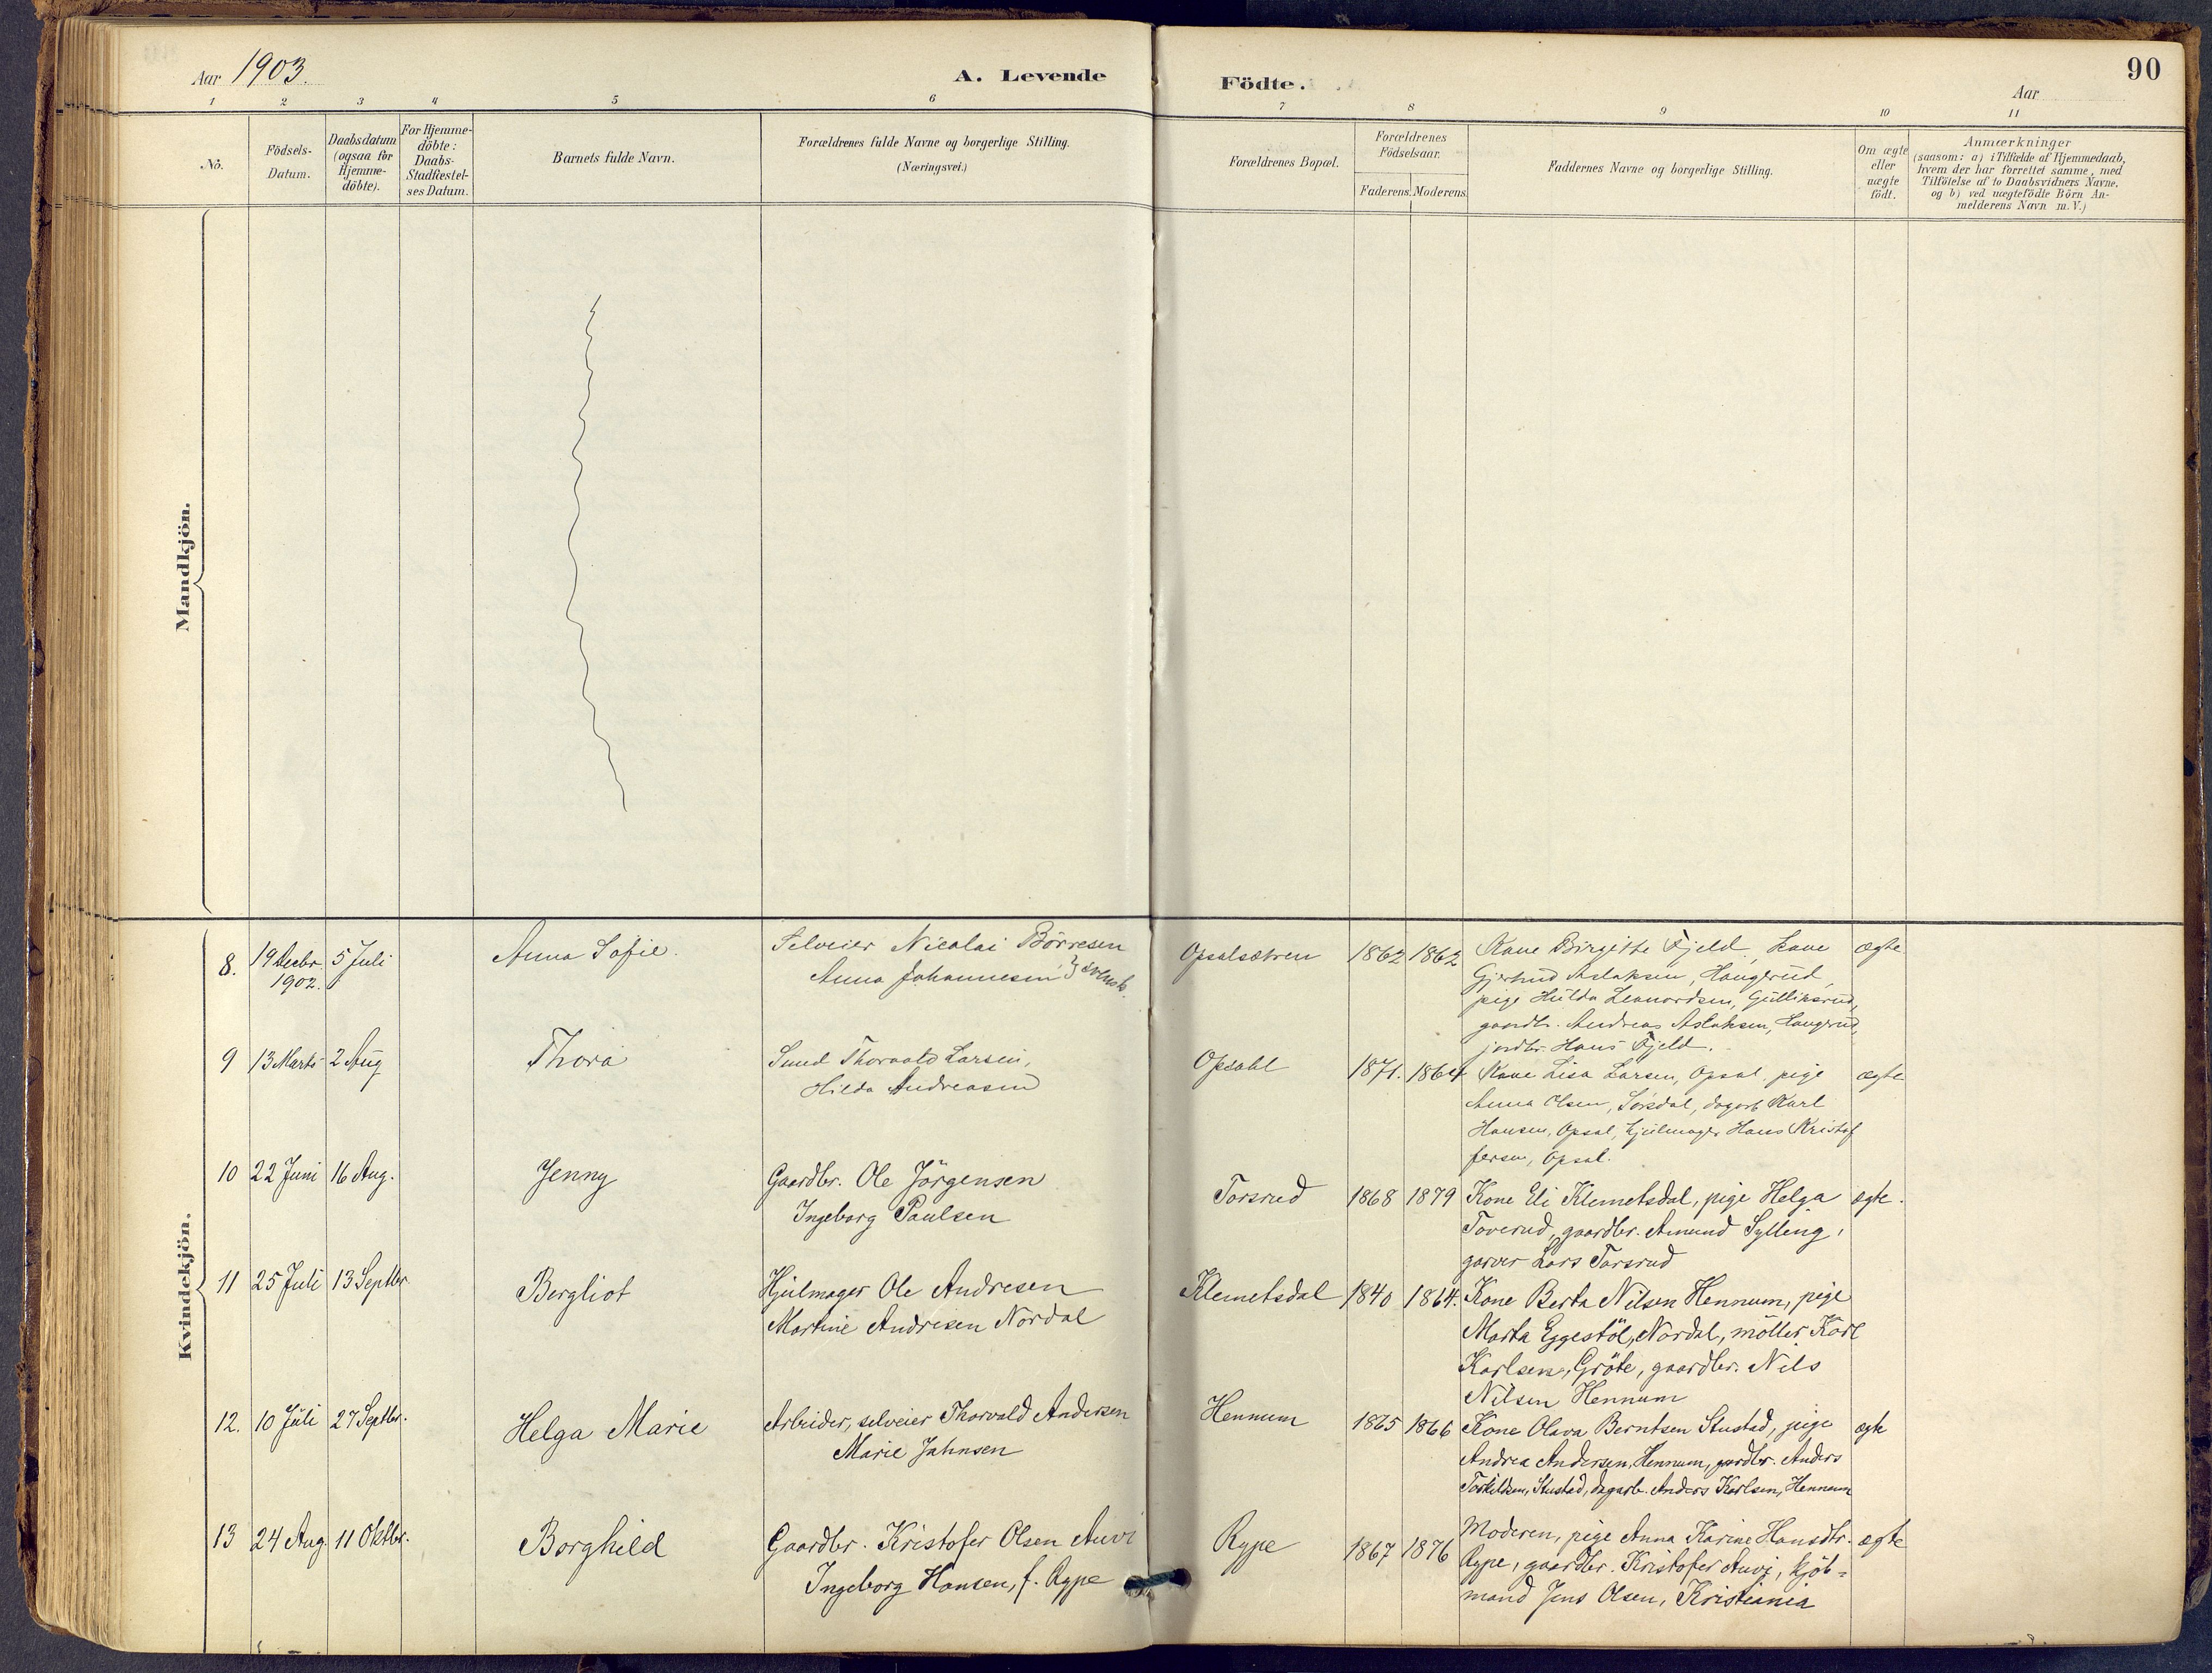 Aar 1903.
A. Levende Födte.
90
Aar
1 2 3 4 5 6 7 8 9 10 11
No.
Födsels-Datum.
Daabsdatum (ogsaa for Hjemme-döbte).
For Hjemme-döbte: Daabs-Stadfæstel-ses Datum.
Barnets fulde Navn.
Forældrenes fulde Navne og borgerlige Stilling.
(Næringsvei.)
Forældrenes Bopæl.
Forældrenes Födselsaar.
Faderens. Moderens.
Faddernes Navne og borgerlige Stilling.
Om ægte eller uægte födt.
Anmærkninger
(saasom: a) i Tilfælde af Hjemmedaab,
hvem der har forrettet samme, med
Tilföielse af to Daabsvidners Navne,
og b) ved uægtefödte Börn An-
melderens Navn m. V.)
Mandkjön.
Kvindekjön.
8. 19 Decbr. 1902. 5 Juli
Anna Sofie.
Selveier Nicolai Börresen
Anna Johannesen
Opsalsætren 1862 1862
Kone Birgitte Fjeld, kone
Gjertrud Aslaksen, Haugerud,
pige Hulda Leonardsen, Gulliksrud,
gaardbr. Andreas Aslaksen, Haugerud,
jordbr. Hans Fjeld.
ægte
9 13 Marts 2 Aug
Thora
Smed Thorvald Larsen,
Hilda Andreasen
Opsahl 1871. 1864
Kone Lisa Larsen, Opsal, pige
Anna Olsen, Sörsdal, dagarb Karl
Hansen, Opsal, hjulmager Hans Kristof
fersen, Opsal.
ægte
10 22 Juni 16 Aug.
Jenny
Gaardbr. Ole Jörgensen
Ingeborg Paulsen
Torsrud 1868 1879
Kone Eli Klemetsdal, pige Helga
Toverud, gaardbr. Amund Sylling,
garver Lars Torsrud
ægte.
11 25 Juli 13 Septbr
Bergliot
Hjulmager Ole Andresen
Martine Andresen Nordal
Klemetsdal 1840 1864.
Kone Berta Nilsen Hennum, pige
Marta Eggestöl, Nordal, möller Karl
Karlsen, Gröte, gaardbr. Nils
Nilsen Hennum
12. 10 Juli 27 Septbr.
Helga Marie
Arbeider, selveier Thorvald Andersen
Marie Jahnsen
Hennum 1865 1866
Kone Olava Berntsen Stustad, pige
Andrea Andersen, Hennum, gardbr. Anders
Torkildsen, Stustad, dagarb. Anders Karlsen, Hennum
ægte
13 24 Aug. 11 Oktbr.
Borghild
Gaardbr. Kristofer Olsen Auvi
Ingeborg Hansen, f. Rype
Rype 1867 1876
Moderen, pige Anna Karine Hansdtr.
Rype, gaardbr. Kristofer Auvi, kjöb=
mand Jens Olsen, Kristiania
ægte